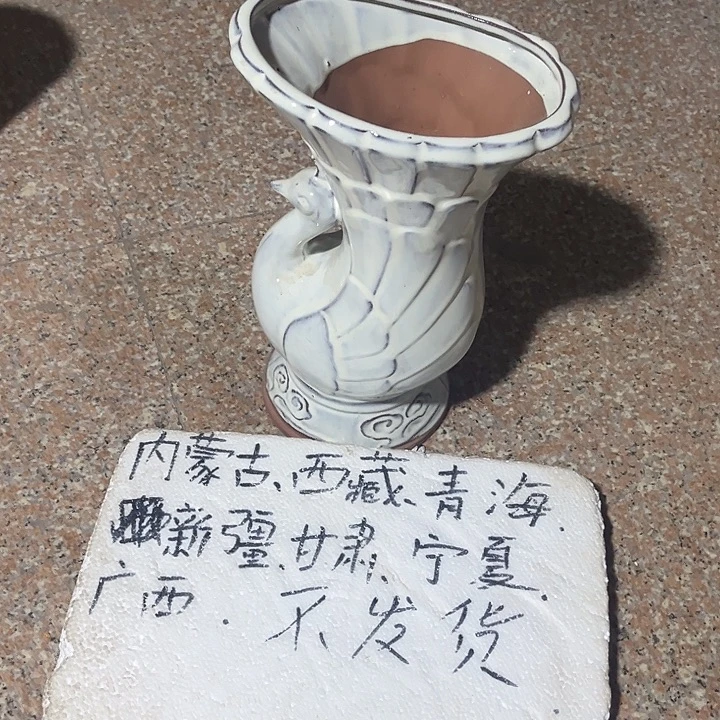 内蒙古、西藏、青海、
新疆、甘肃、宁夏、
广西. 不发货